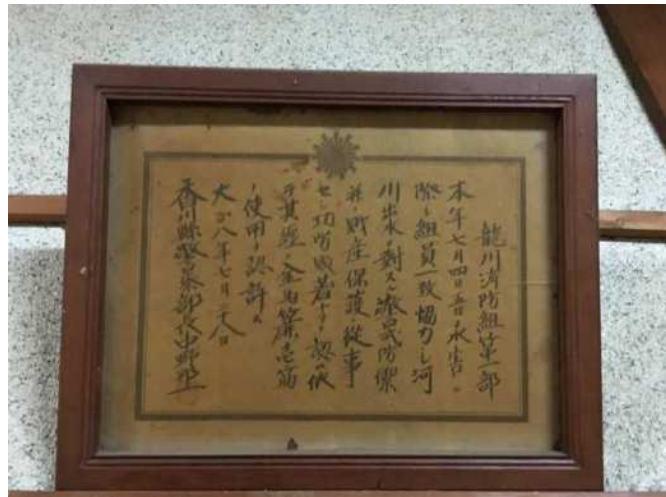 龍川消防組第一部
本年七月四日五日ノ水害ニ
際シ組員一致協力シ河
川出水ニ對スル警戒防禦
並ニ財産保護ニ從事
セシ功労顕著ナリト認メ依
テ其纒ニ金馬簾壱筋
ノ使用ヲ認許ス
大正八年七月二十八日
香川縣警察部長中野邦一